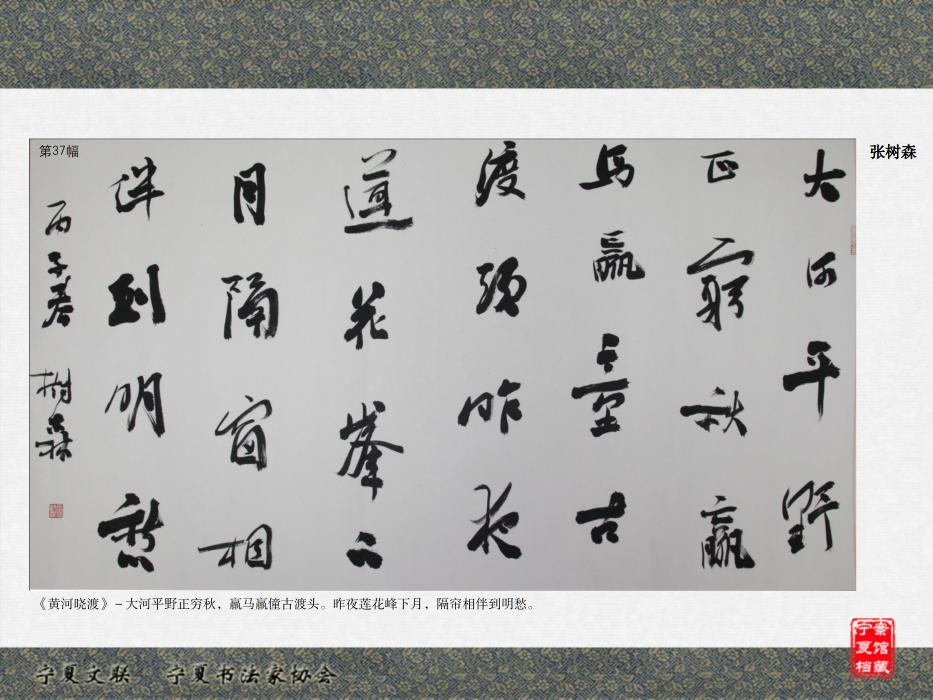 第37幅
张树森
大河平野
正窮秋羸
馬羸童古
渡頭昨夜
蓮花峯下
月隔窗相
伴到明愁
丙子春 樹森
《黄河晓渡》－大河平野正穷秋，赢马赢僮古渡头。昨夜莲花峰下月，隔帘相伴到明愁。
宁夏文联 宁夏书法家协会
宁夏档案馆藏